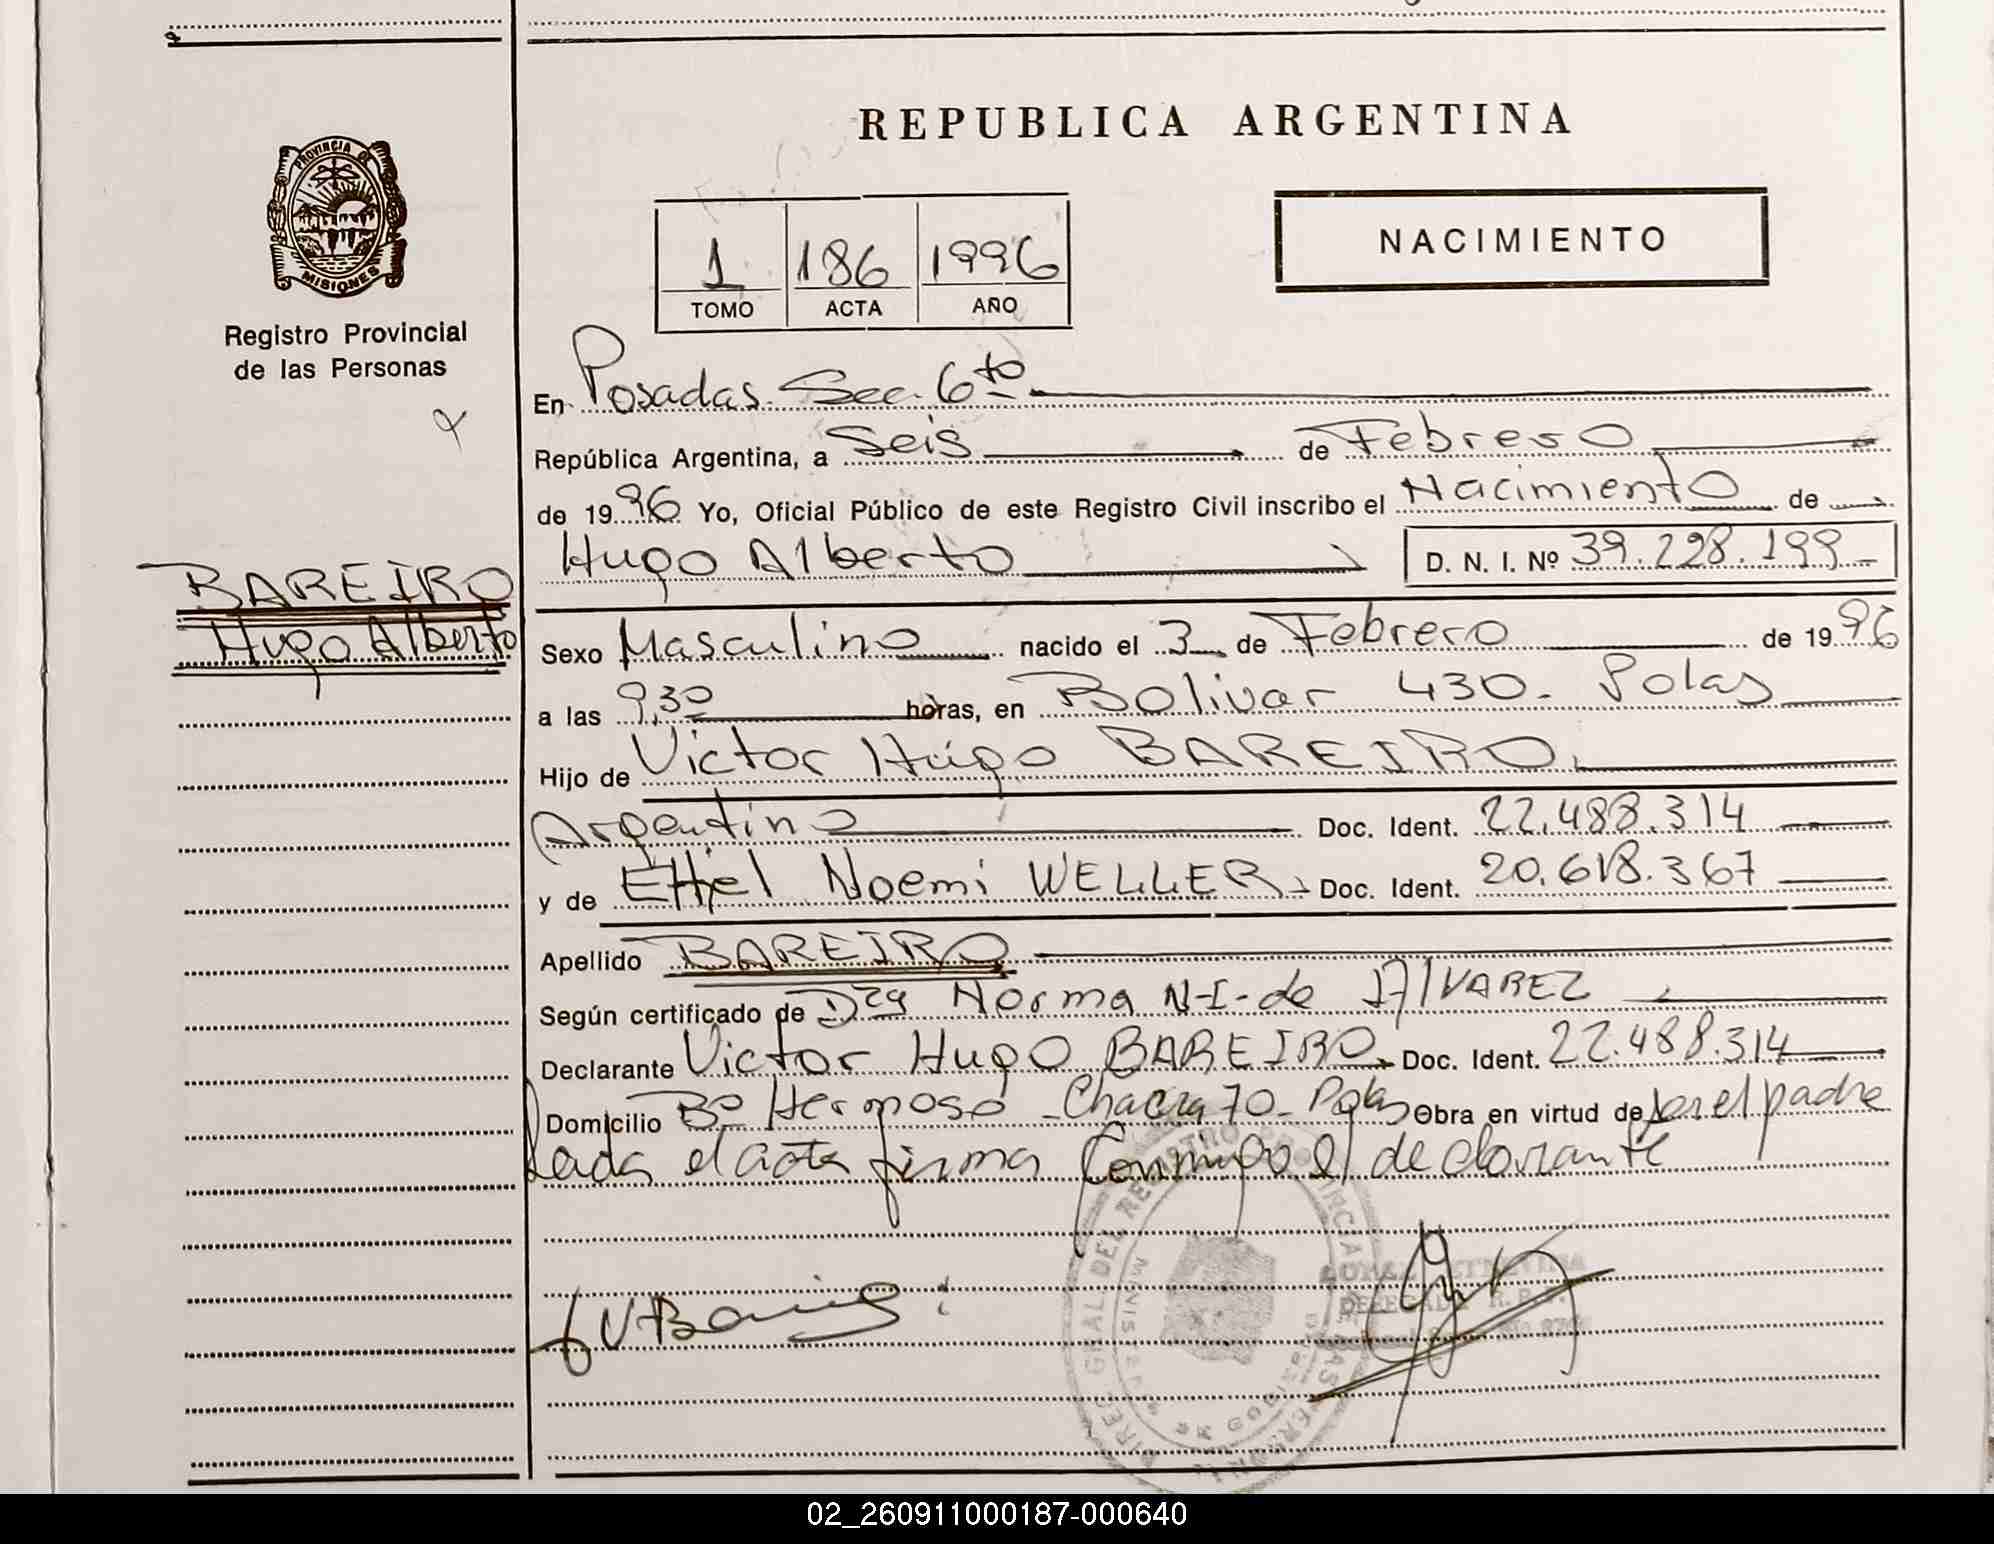 REPUBLICA ARGENTINA
PROVINCIA DE
MISIONES
Registro Provincial
de las Personas
NACIMIENTO
1 186 1996
TOMO ACTA AÑO
En Posadas Sec. 6to
República Argentina, a Seis de Febrero
de 1996 Yo, Oficial Público de este Registro Civil inscribo el Nacimiento de
Hugo Alberto D. N. I. Nº 39.228.199
BAREIRO
Hugo Alberto
Sexo Masculino nacido el 3 de Febrero de 1996
a las 9,30 horas, en Bolivar 430. Pdas
Hijo de Victor Hugo BAREIRO
Argentino Doc. Ident. 22.488.314
y de Noemi WELLER Doc. Ident. 20.618.367
Apellido BAREIRO
Según certificado de Dra Norma N-I-de ALVAREZ
Declarante Victor Hugo BAREIRO Doc. Ident. 22.488.314
Domicilio Bº Hermoso - Chacra 70 - Pdas Obra en virtud de ser el padre
Leida el acta firma Conmigo el declarante
02_260911000187-000640